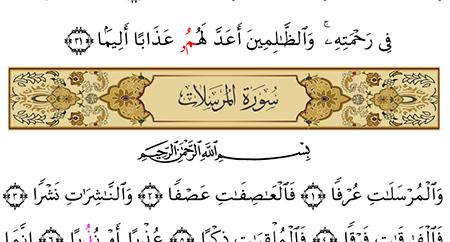 فِى رَحْمَتِهِۦ ۚ وَٱلظَّٰلِمِينَ أَعَدَّ لَهُمُۥ عَذَابًا أَلِيمًۢا ﴿٣١﴾
سُورَةُ المُرْسَلَات
بِسْمِ ٱللَّهِ ٱلرَّحْمَٰنِ ٱلرَّحِيمِ
وَٱلْمُرْسَلَٰتِ عُرْفًا ﴿١﴾ فَٱلْعَٰصِفَٰتِ عَصْفًا ﴿٢﴾ وَٱلنَّٰشِرَٰتِ نَشْرًا ﴿٣﴾
فَٱلْفَٰرِقَٰتِ فَرْقًا ﴿٤﴾ فَٱلْمُلْقِيَٰتِ ذِكْرًا ﴿٥﴾ عُذْرًا أَوْ نُذُرًا ﴿٦﴾ إِنَّمَا